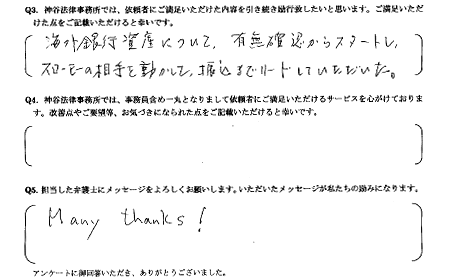 Q3. 神谷法律事務所では、依頼者にご満足いただけた内容を引き続き励行致したいと思います。ご満足いただ
けた点をご記載いただけると幸いです。
海外銀行資産について、有無確認からスタートし、
スローモーの相手を動かして、振込までリードしていただいた。
Q4. 神谷法律事務所では、事務員含め一丸となりまして依頼者にご満足いただけるサービスを心がけておりま
す。改善点やご要望等、お気づきになられた点をご記載いただけると幸いです。
Q5. 担当した弁護士にメッセージをよろしくお願いします。いただいたメッセージが私たちの励みになります。
Many thanks!
アンケートに御回答いただき、ありがとうございました。